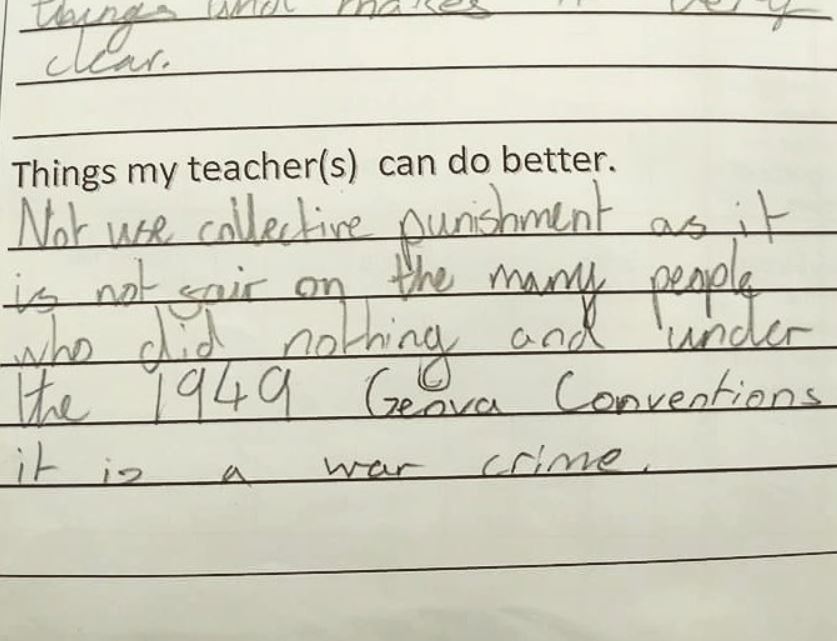 things and makes it very
clear.
Things my teacher(s) can do better.
Not use collective punishment as it
is not fair on the many people
who did nothing and under
the 1949 Geneva Conventions
it is a war crime.